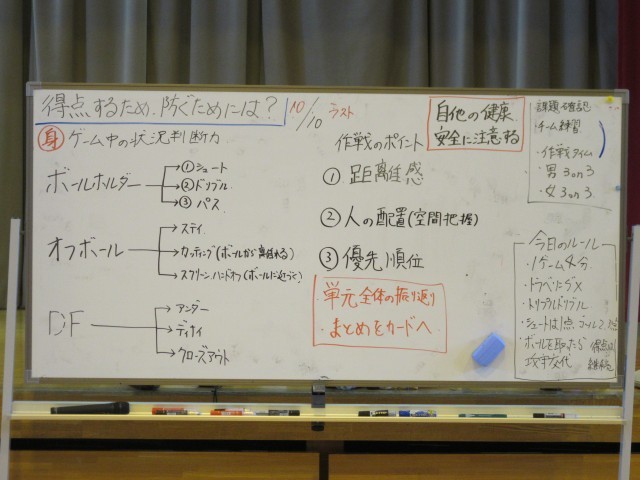 得点するため、防ぐためには?
10/10 ラスト
身 ゲーム中の状況判断力
ボールホルダー
①シュート
②ドリブル
③パス
オフボール
ステイ
カッティング(ボールから離れる)
スクリーン、ハンドオフ(ボールに近づく)
DF
アンダー
ディナイ
クローズアウト
自他の健康
安全に注意する
作戦のポイント
①距離感
②人の配置(空間把握)
③優先順位
単元全体の振り返り
まとめをカードへ
・課題確認
・チーム練習
・作戦タイム
・男3on3
・女3on3
今日のルール
・1ゲーム
・トラベルダメ
・トリプルドリブル
・シュートは1点、ゴール2点
・ボールを取ったら
攻守交代
得点は